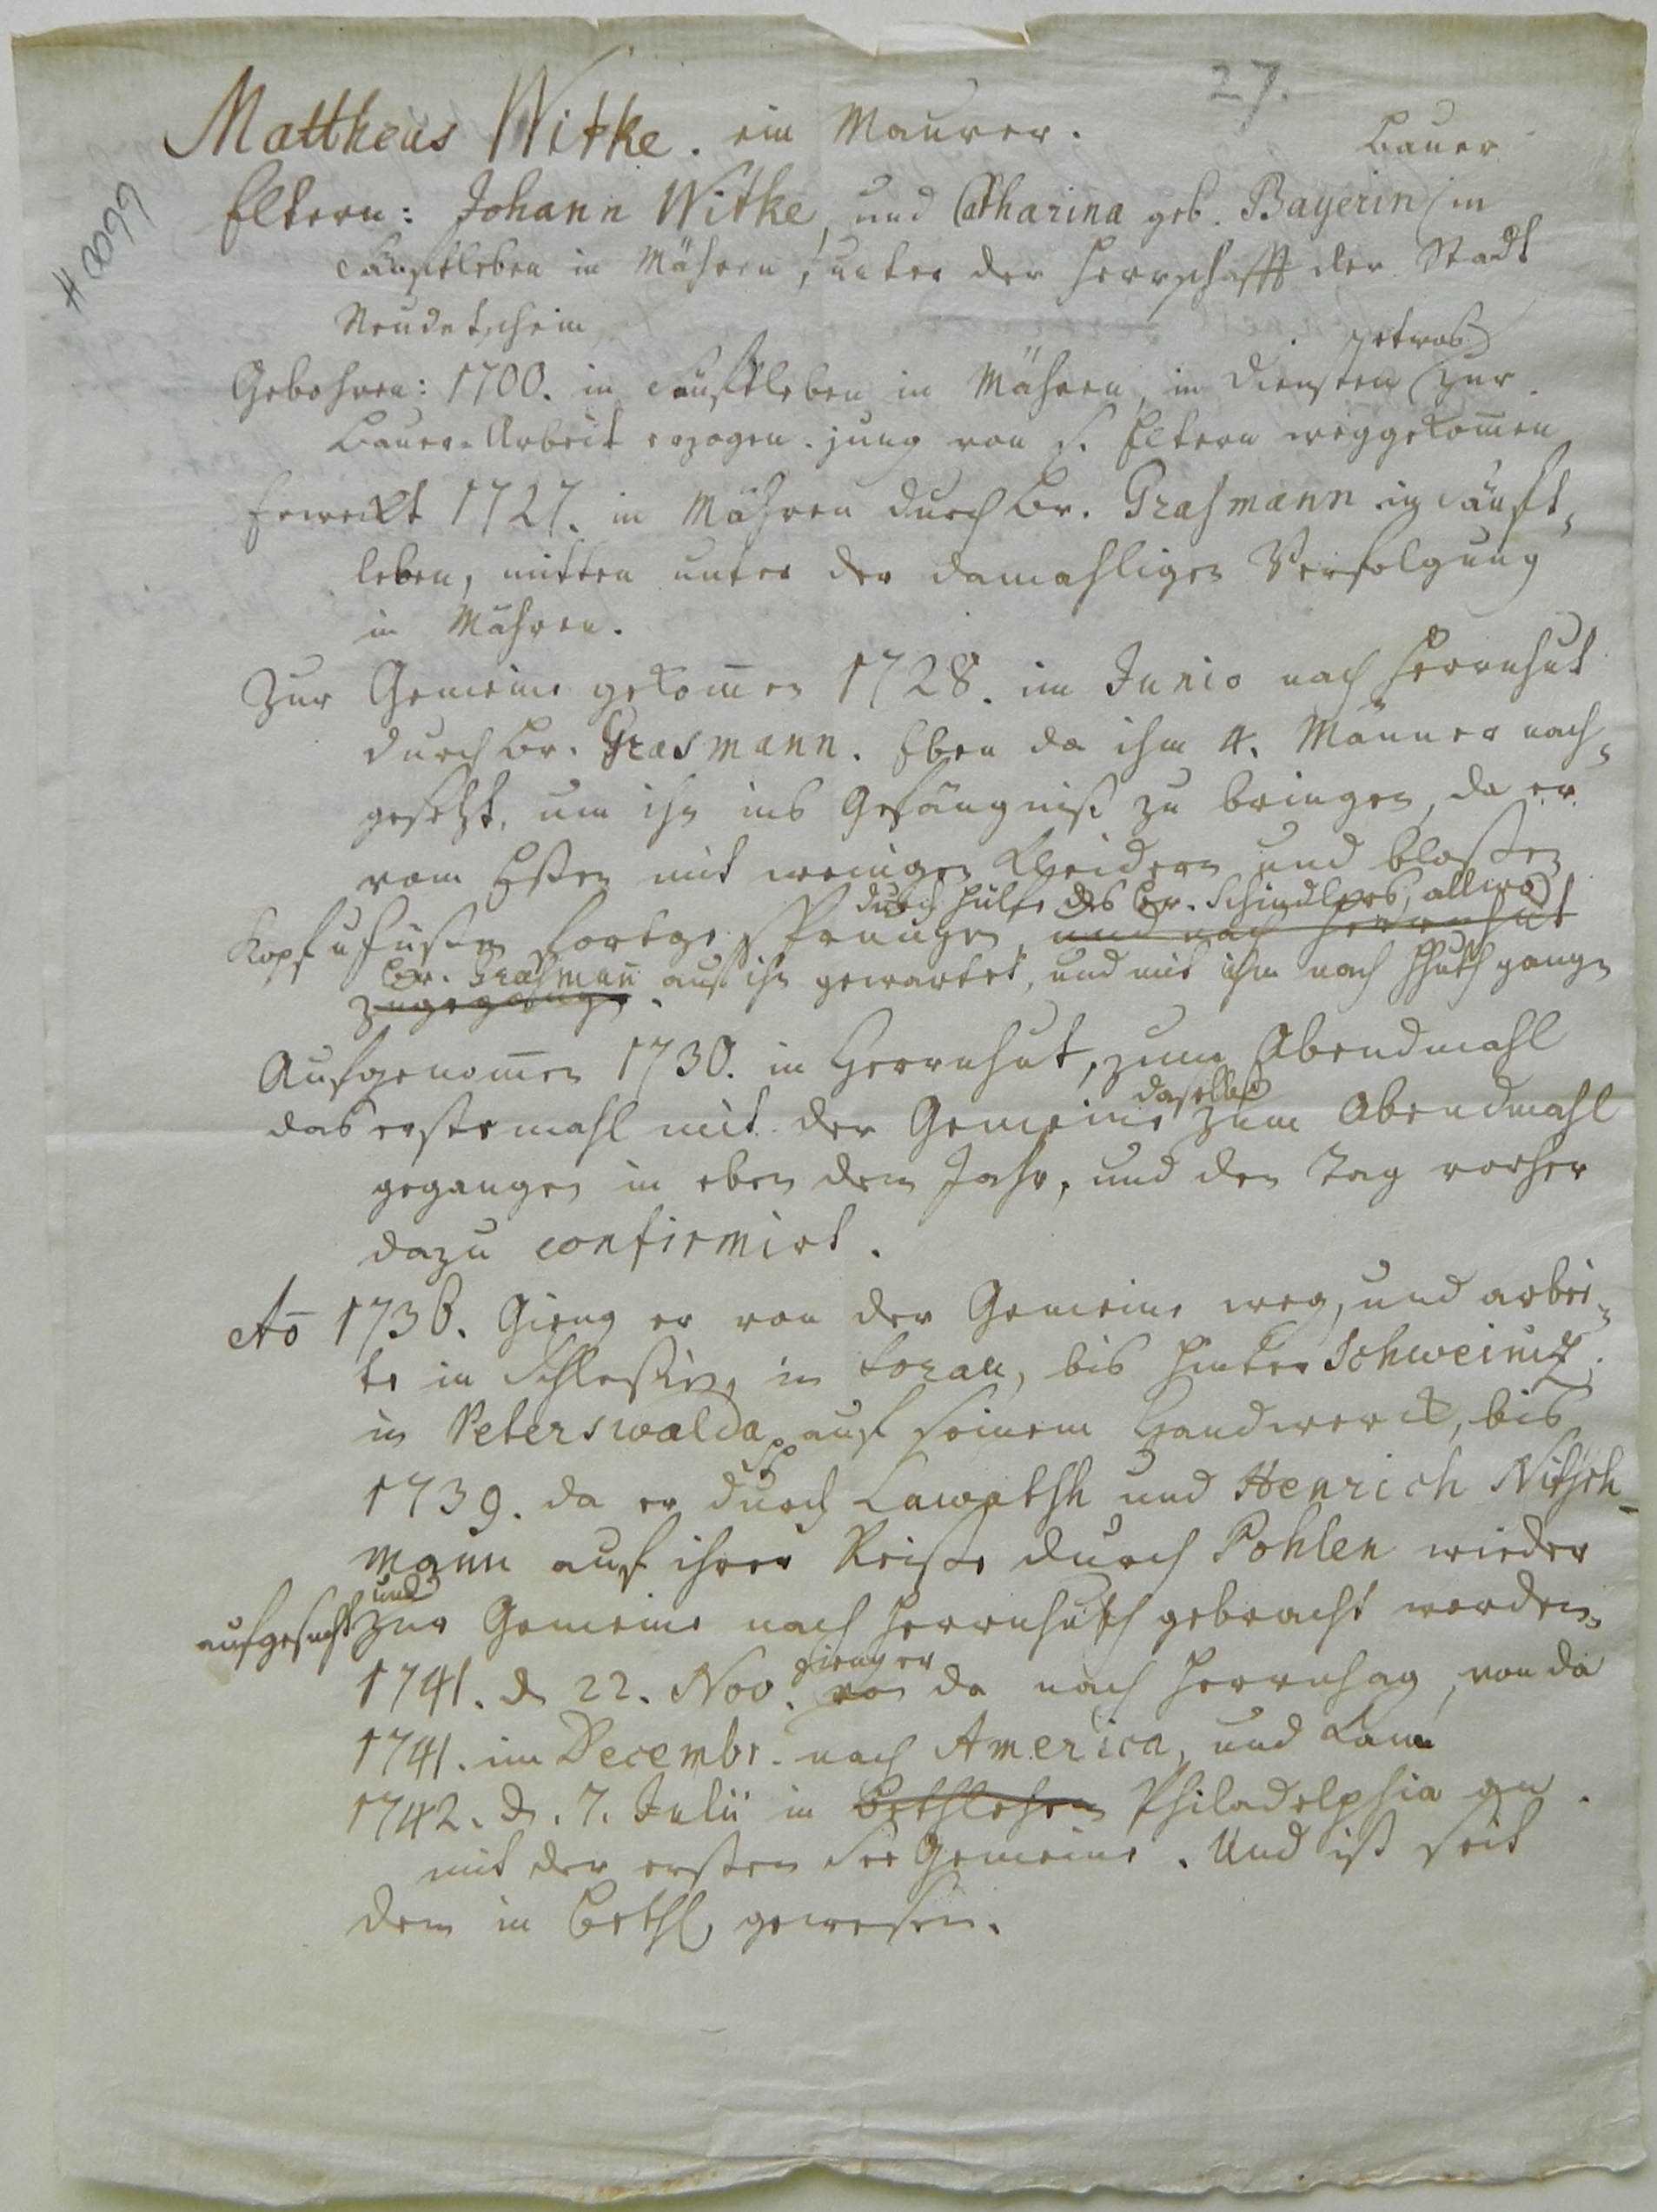 27.
# 0099
Mattheus Witke. ein Maurer.
Bauer
Eltern: Johann Witke, und Catharina geb. Bayerin in
Säuftleben in Mähren, unter der Herrschafft der Stadt
Neudetschein
etwas
Gebohren: 1700. in Säuftleben in Mähren, in Diensten zur
Bauer-Arbeit erzogen. jung von s. Eltern weggekom̄en
Erwekt 1727. in Mähren durch Br. Grasmann in Säuft-
leben, mitten unter der damahligen Verfolgung
in Mähren.
Zur Gemeine gekom̄en 1728. im Junio nach Herrnhut
durch Br. Grasmann. Eben da ihm 4. Männer nach-
gesetzt, um ihn ins Gefängniß zu bringen, da er
vom Essen mit wenigen Kleidern und blossen
durch Hülfe des Br. Schindlers, allwo
Kopf u Füssen fortge sprungen, und nach Herrnhut
Br. Grasman̄ auf ihn gewartet, und mit ihm nach Hhuth gangen
zugegangen.
Aufgenom̄en 1730. in Herrnhut, zum Abendmahl
daselbst
das erstemahl mit der Gemeine zum Abendmahl
gegangen in eben dem Jahr, und den Tag vorher
dazu confirmirt.
Ao 1736. Gieng er von der Gemeine weg, und arbei-
te in Schlesien, in Sorau, bis hinter Schweinitz
in Peterswalda pp auf seinem Handwerck, bis
1739. da er durch Lawatsh und Henrich Nitsch-
mann auf ihrer Reise durch Pohlen wieder
und
aufgesucht zur Gemeine nach Herrnhuth gebracht worden.
gieng er
1741. d 22. Nov. von da nach Herrnhag, von da
1741. im Decembr. nach America, und kam
1742. d. 7. Julii in Bethlehem Philadelphia an
mit der ersten See Gemeine. Und ist seit
dem in Bethl. gewesen.